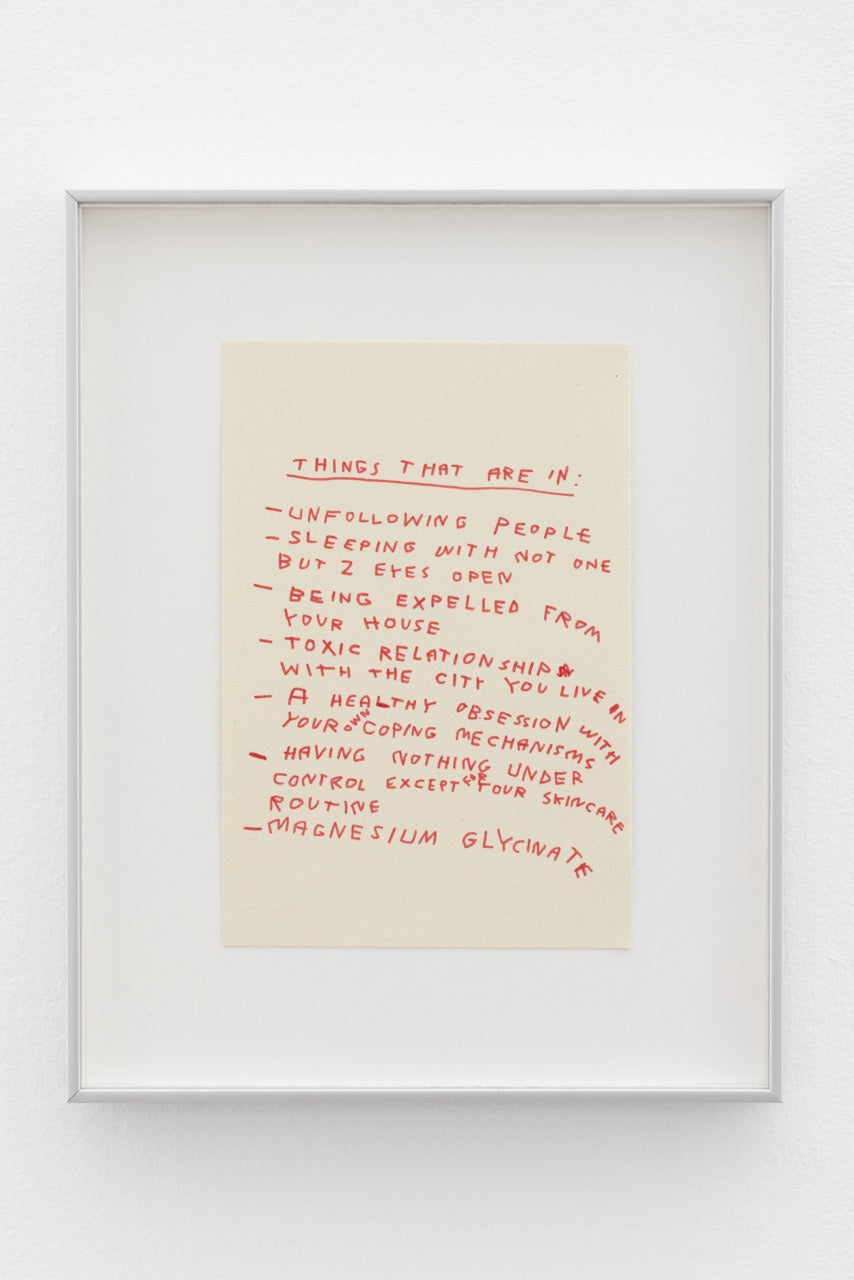 THINGS THAT ARE IN:
- UNFOLLOWING PEOPLE
- SLEEPING WITH NOT ONE
BUT 2 EYES OPEN
- BEING EXPELLED FROM
YOUR HOUSE
- TOXIC RELATIONSHIPS
WITH THE CITY YOU LIVE IN
- A HEALTHY OBSESSION WITH
YOUR OWN COPING MECHANISMS
- HAVING NOTHING UNDER
CONTROL EXCEPT FOR YOUR SKINCARE
ROUTINE
- MAGNESIUM GLYCINATE